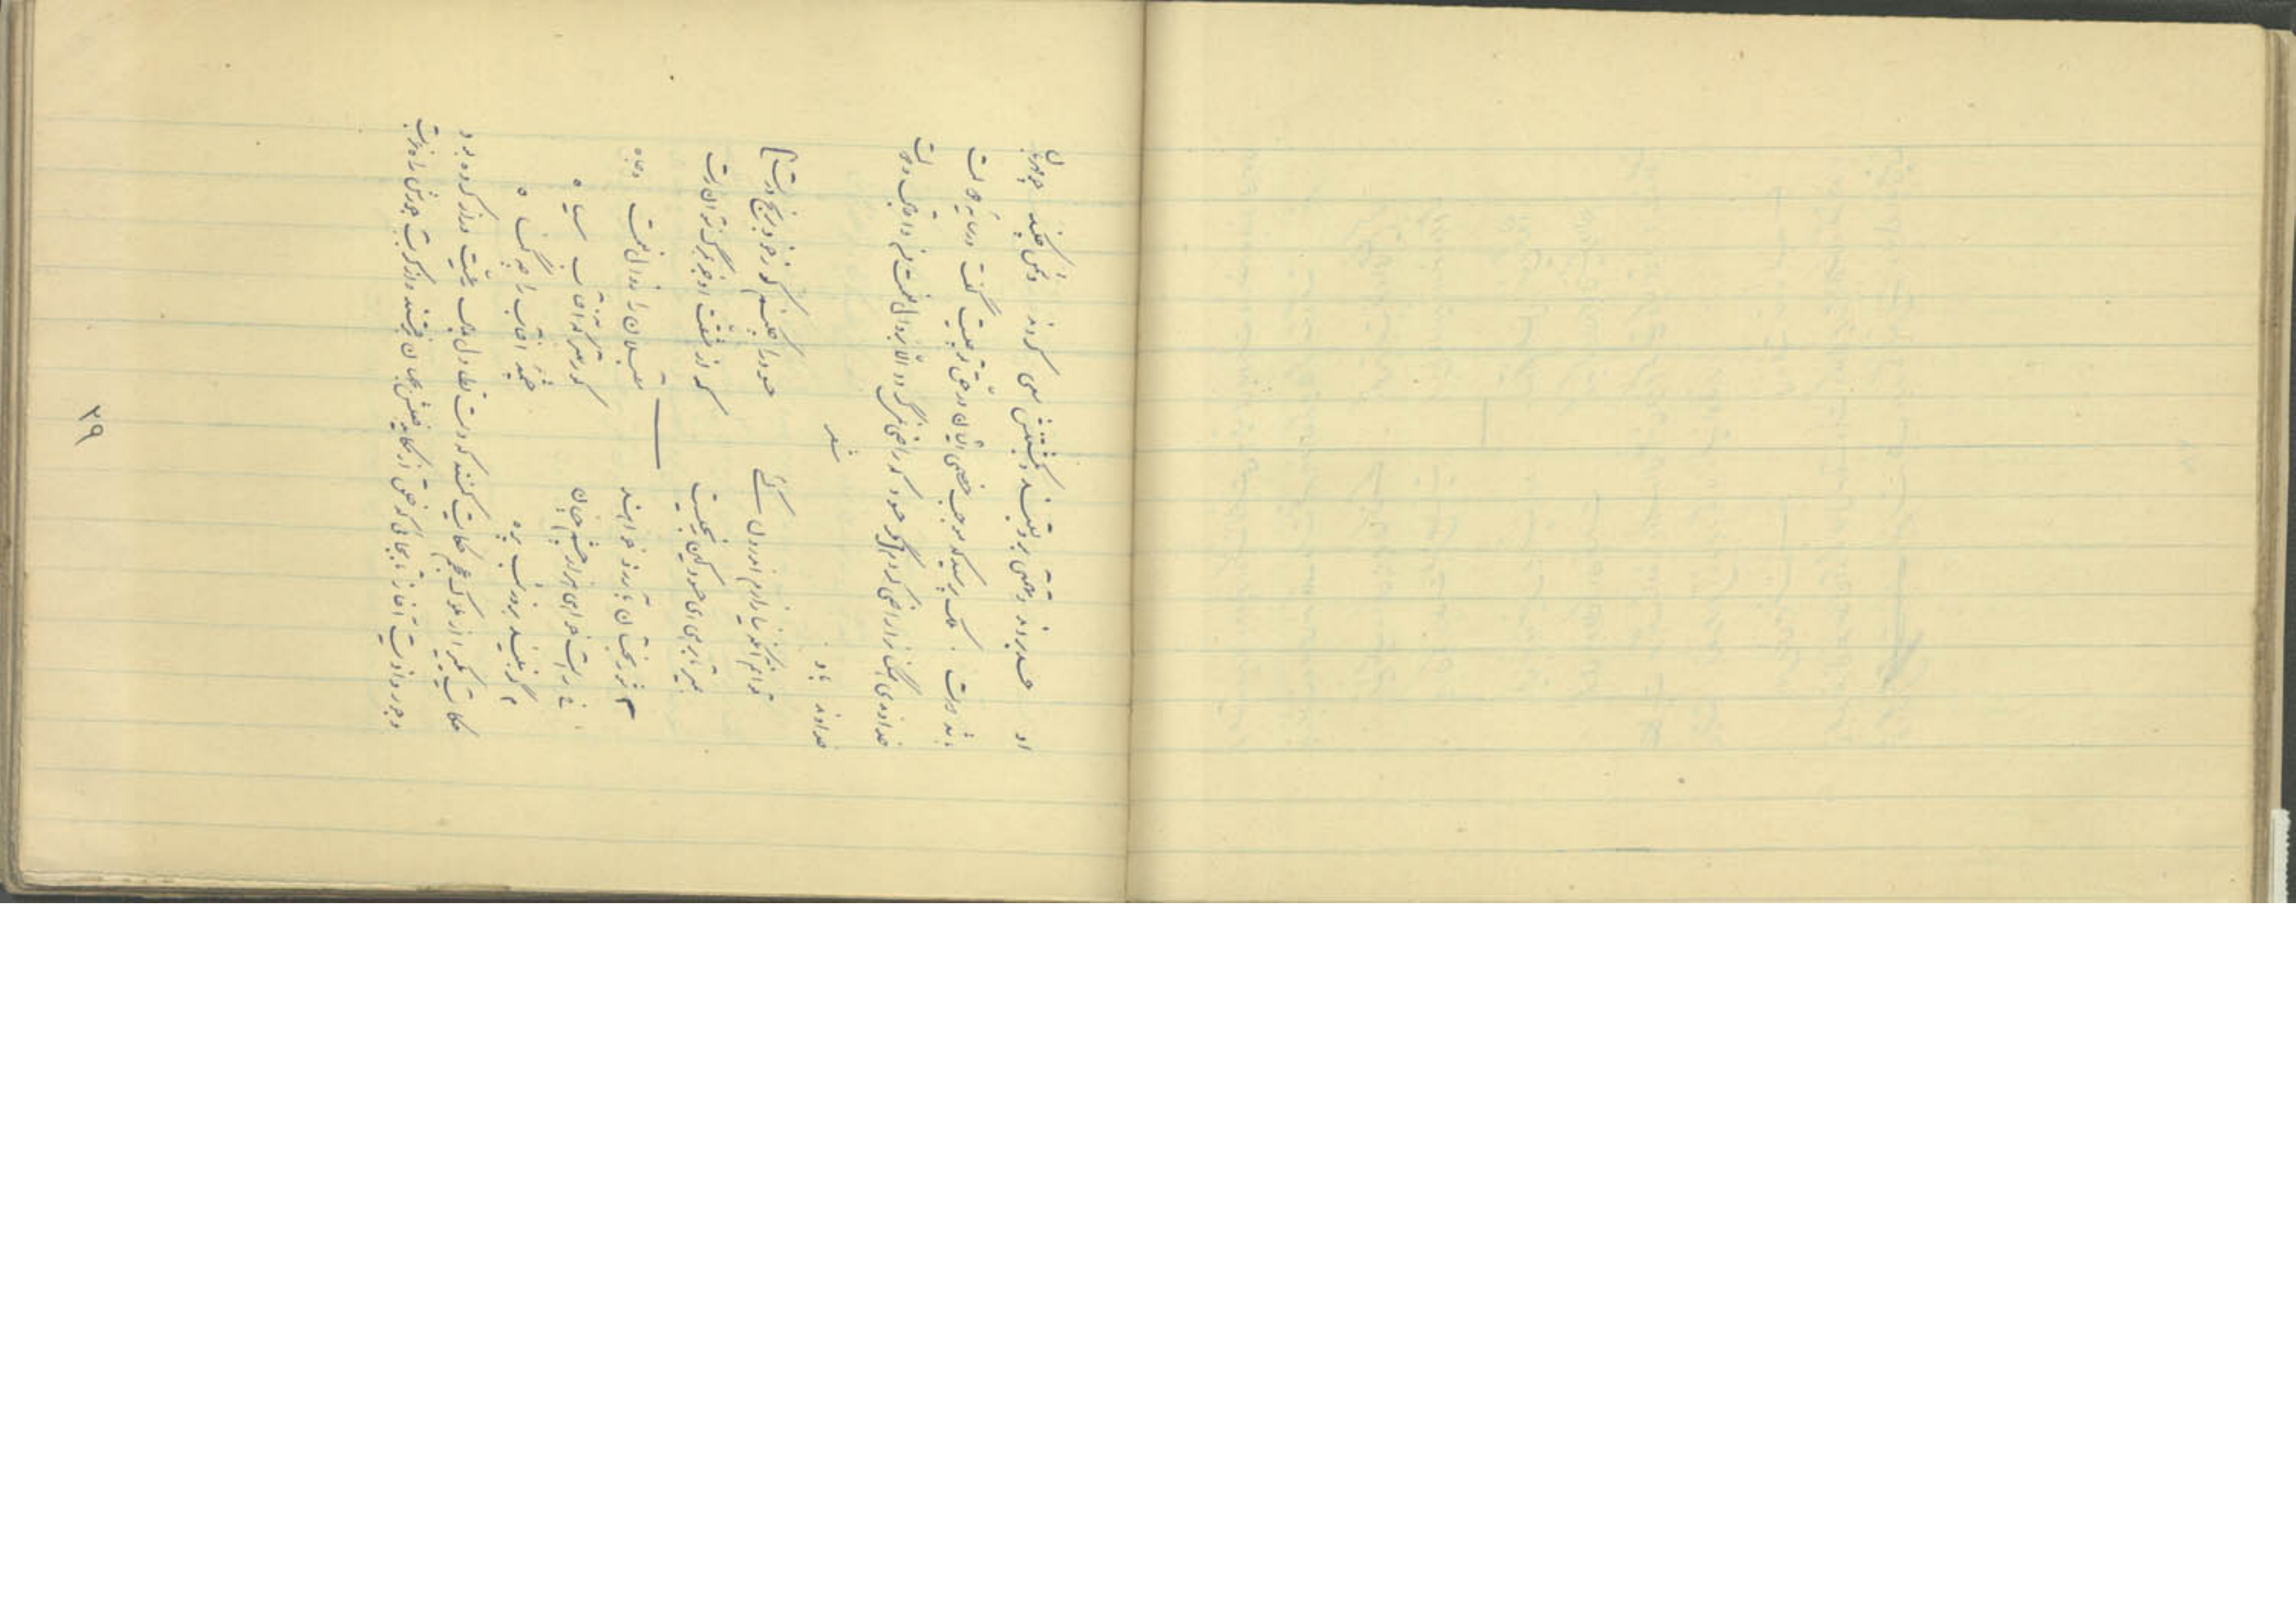 او حسد بردند و تهمتی بر او بستند و در کشتنش سعی کردند دشمن چکند چو مهربان
باشد دوست . ملک پرسید که موجب خصمی ایشان در حق تو چیست گفت در سایه دولت
خداوندی همگنان را راضی کردم مگر حسود که راضی نمیگردد الّا بزوال نعمت من و اقبال و دولت
خداوند باد شعر
توانم آنکه نیازارم اندرون کسی حسود را چکنم کو ز خود برنج درست
بمیر تا برهی ای حسود کین رنجیست که از مشقت او جز بمرگ نتوان رست
شوربختان بآرزو خواهند مقبلان را زوال نعمت و جاه
راست خواهی هزار چشم چنان کور بهتر که آفتاب سیاه
گر نبیند بروز شب پره چشمه آفتاب را چه گناه
حکایت یکی از ملوک عجم حکایت کنند که دست تطاول بمال رعیّت دراز کرده بود
و جور و اذیت آغاز تا بجائی که خلق از مکاید فعلش بجهان برفتند و از کربت جورش راه غربت
٣٩